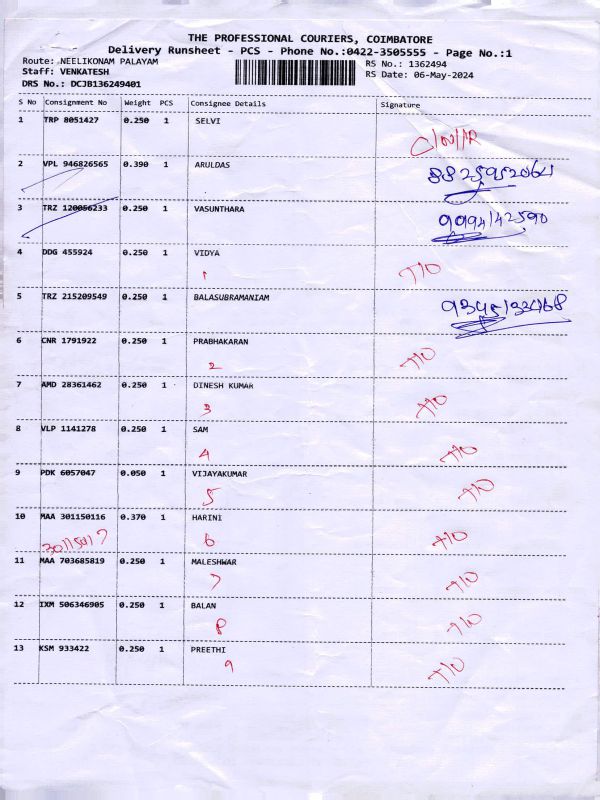 THE PROFESSIONAL COURIERS, COIMBATORE
Delivery Runsheet - PCS - Phone No.:0422-3505555 - Page No.:1
Route: NEELIKONAM PALAYAM
RS No.: 1362494
Staff: VENKATESH
RS Date: 06-May-2024
DRS No.: DCJB136249401
S No Consignment No Weight PCS Consignee Details Signature
1 TRP 8051427 0.250 1 SELVI
2 VPL 946826565 0.390 1 ARULDAS
3 TRZ 120056233 0.250 1 VASUNTHARA
9994142590
4 DDG 455924 0.250 1 VIDYA
1 T/O
5 TRZ 215209549 0.250 1 BALASUBRAMANIAM
6 CNR 1791922 0.250 1 PRABHAKARAN
2 T/O
7 AMD 28361462 0.250 1 DINESH KUMAR
3 T/O
8 VLP 1141278 0.250 1 SAM
4 T/O
9 PDK 6057047 0.050 1 VIJAYAKUMAR
5 T/O
10 MAA 301150116 0.370 1 HARINI
6 T/O
11 MAA 703685819 0.250 1 MALESHWAR
7 T/O
12 IXM 506346905 0.250 1 BALAN
8 T/O
13 KSM 933422 0.250 1 PREETHI
9 T/O